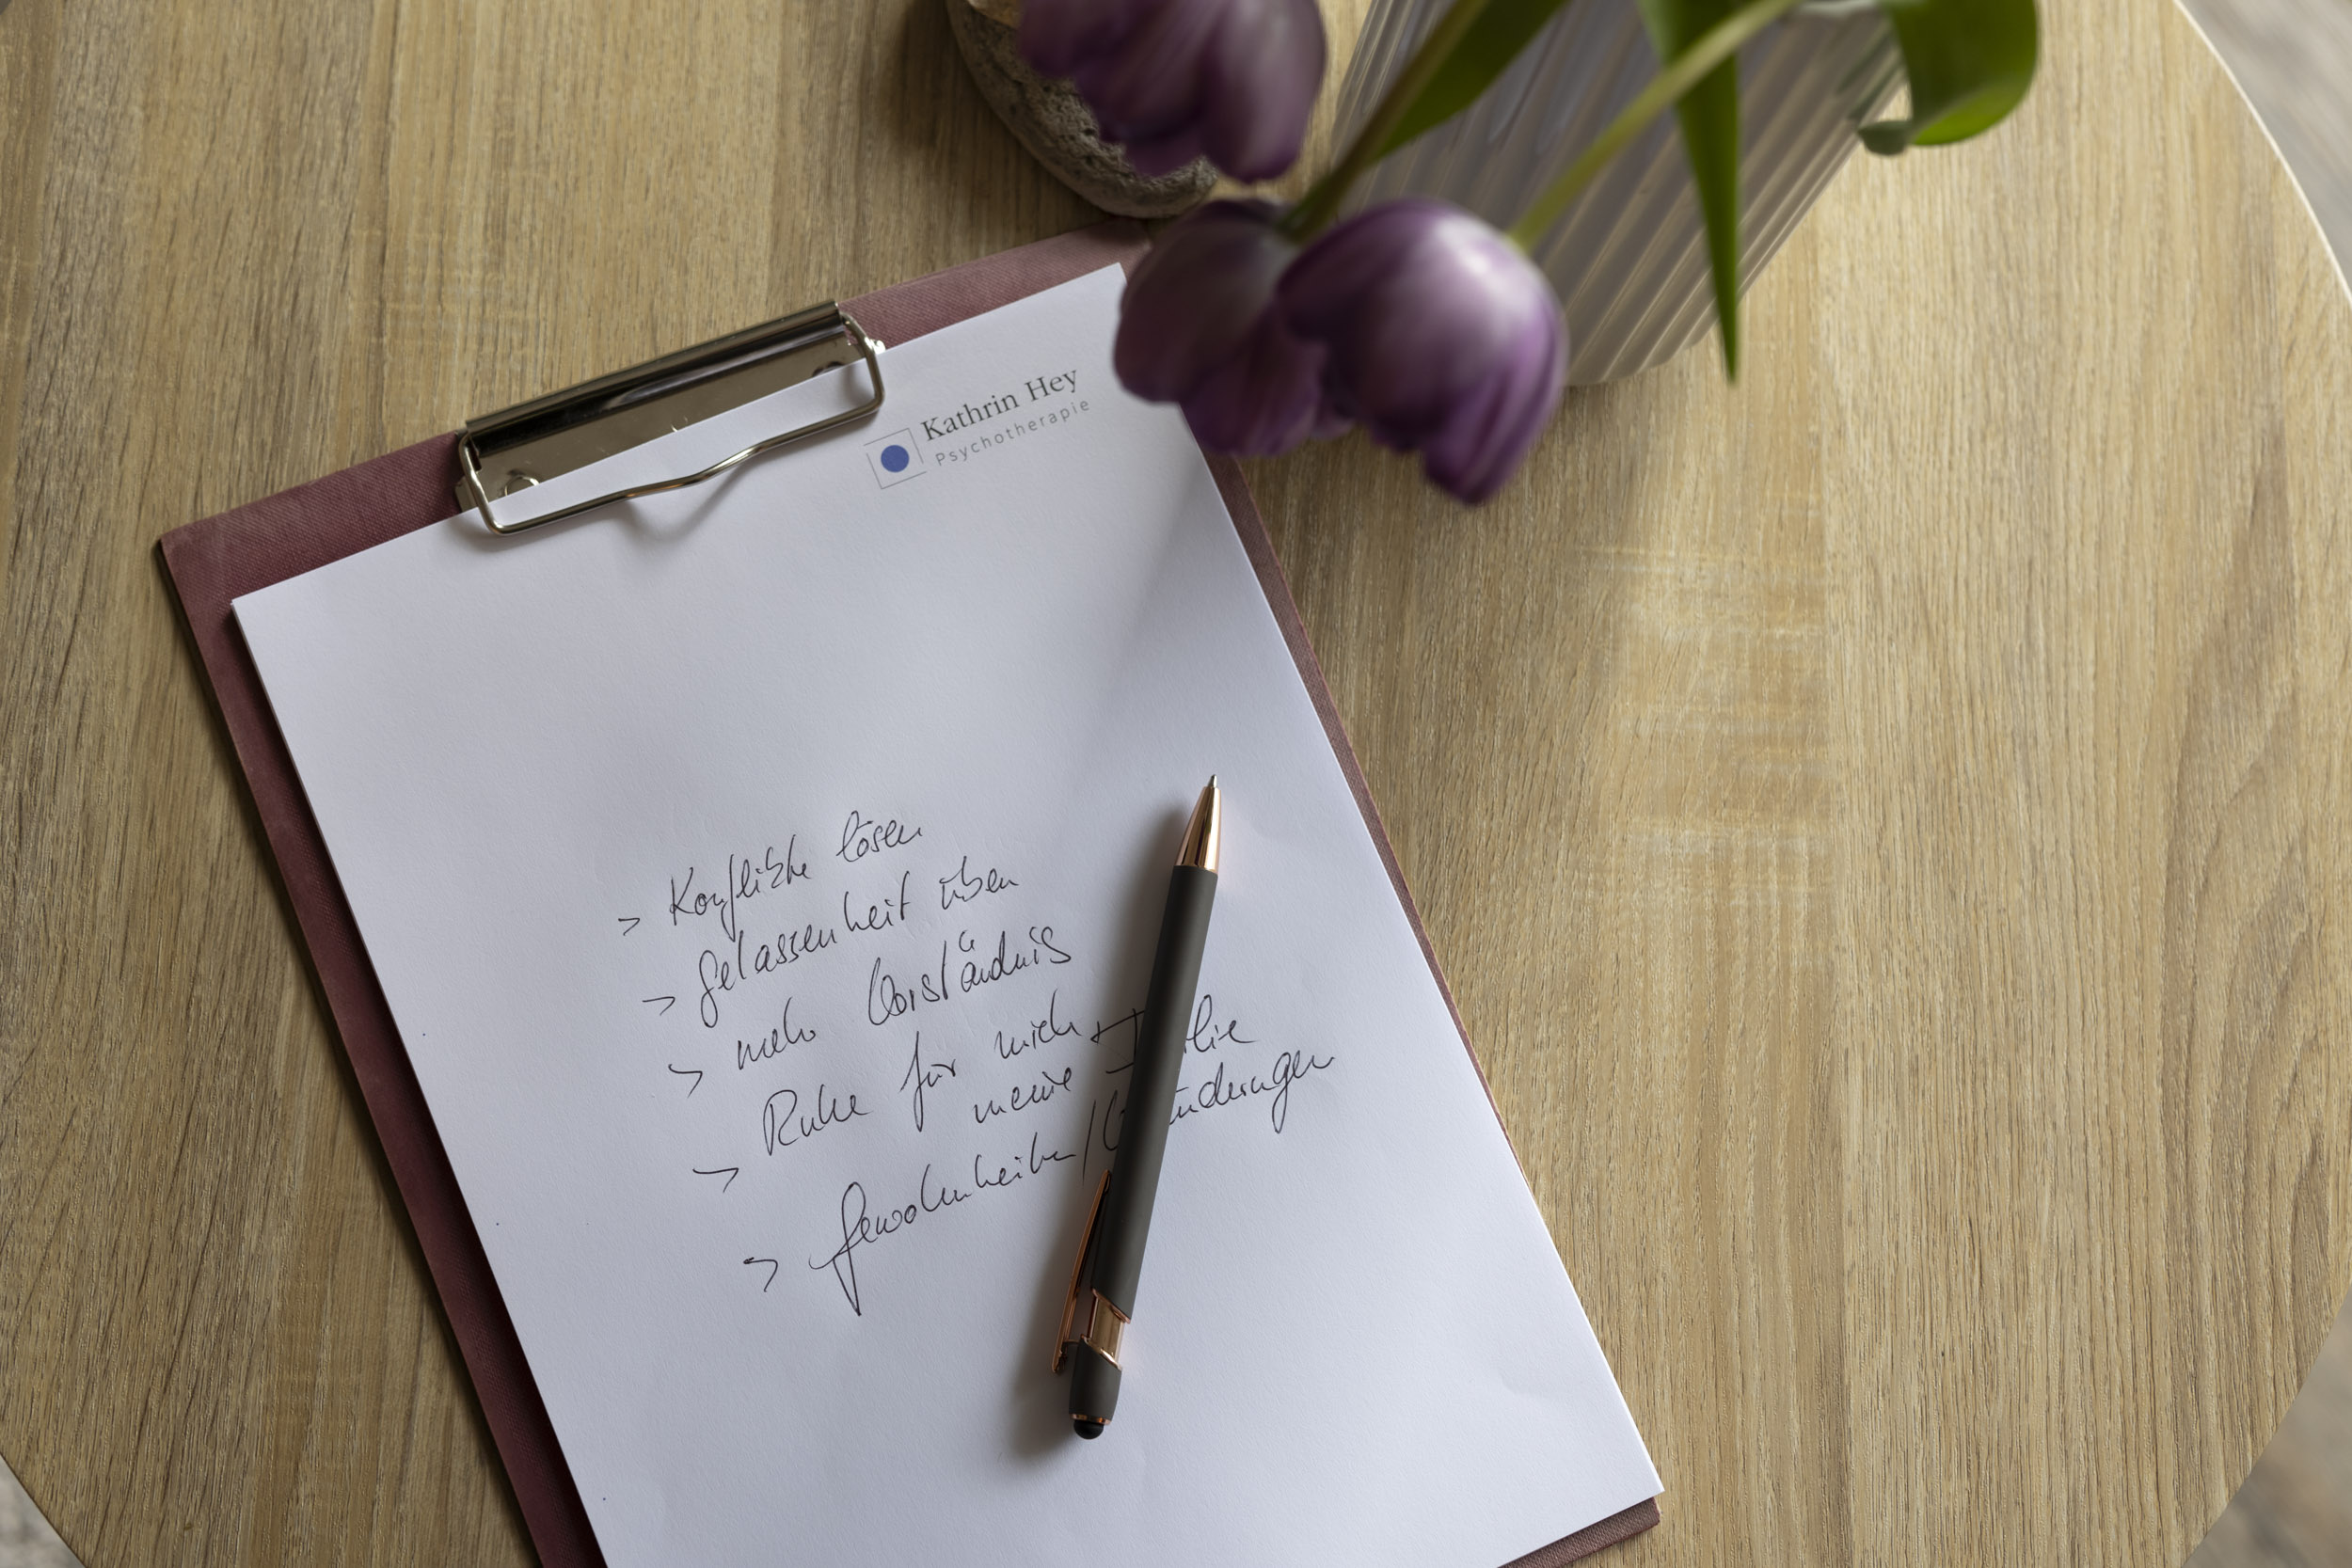 Kathrin Hey
Psychotherapie
> Konflikte lösen
> Gelassenheit üben
> mehr Verständnis
> Ruhe für mich +
meine
> Gewohnheiten /